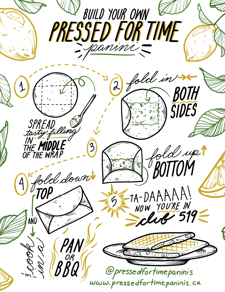 BUILD YOUR OWN
PRESSED FOR TIME
panini
1
SPREAD
tasty filling
IN
THE MIDDLE
OF THE WRAP
2
fold in
BOTH
SIDES
3
fold up
BOTTOM
4
fold down
TOP
AND
cook
in a
PAN
OR
BBQ
5
TA-DAAAAA!
NOW YOU'RE IN
club 519
@pressedfortimepaninis
www.pressedfortimepaninis.ca